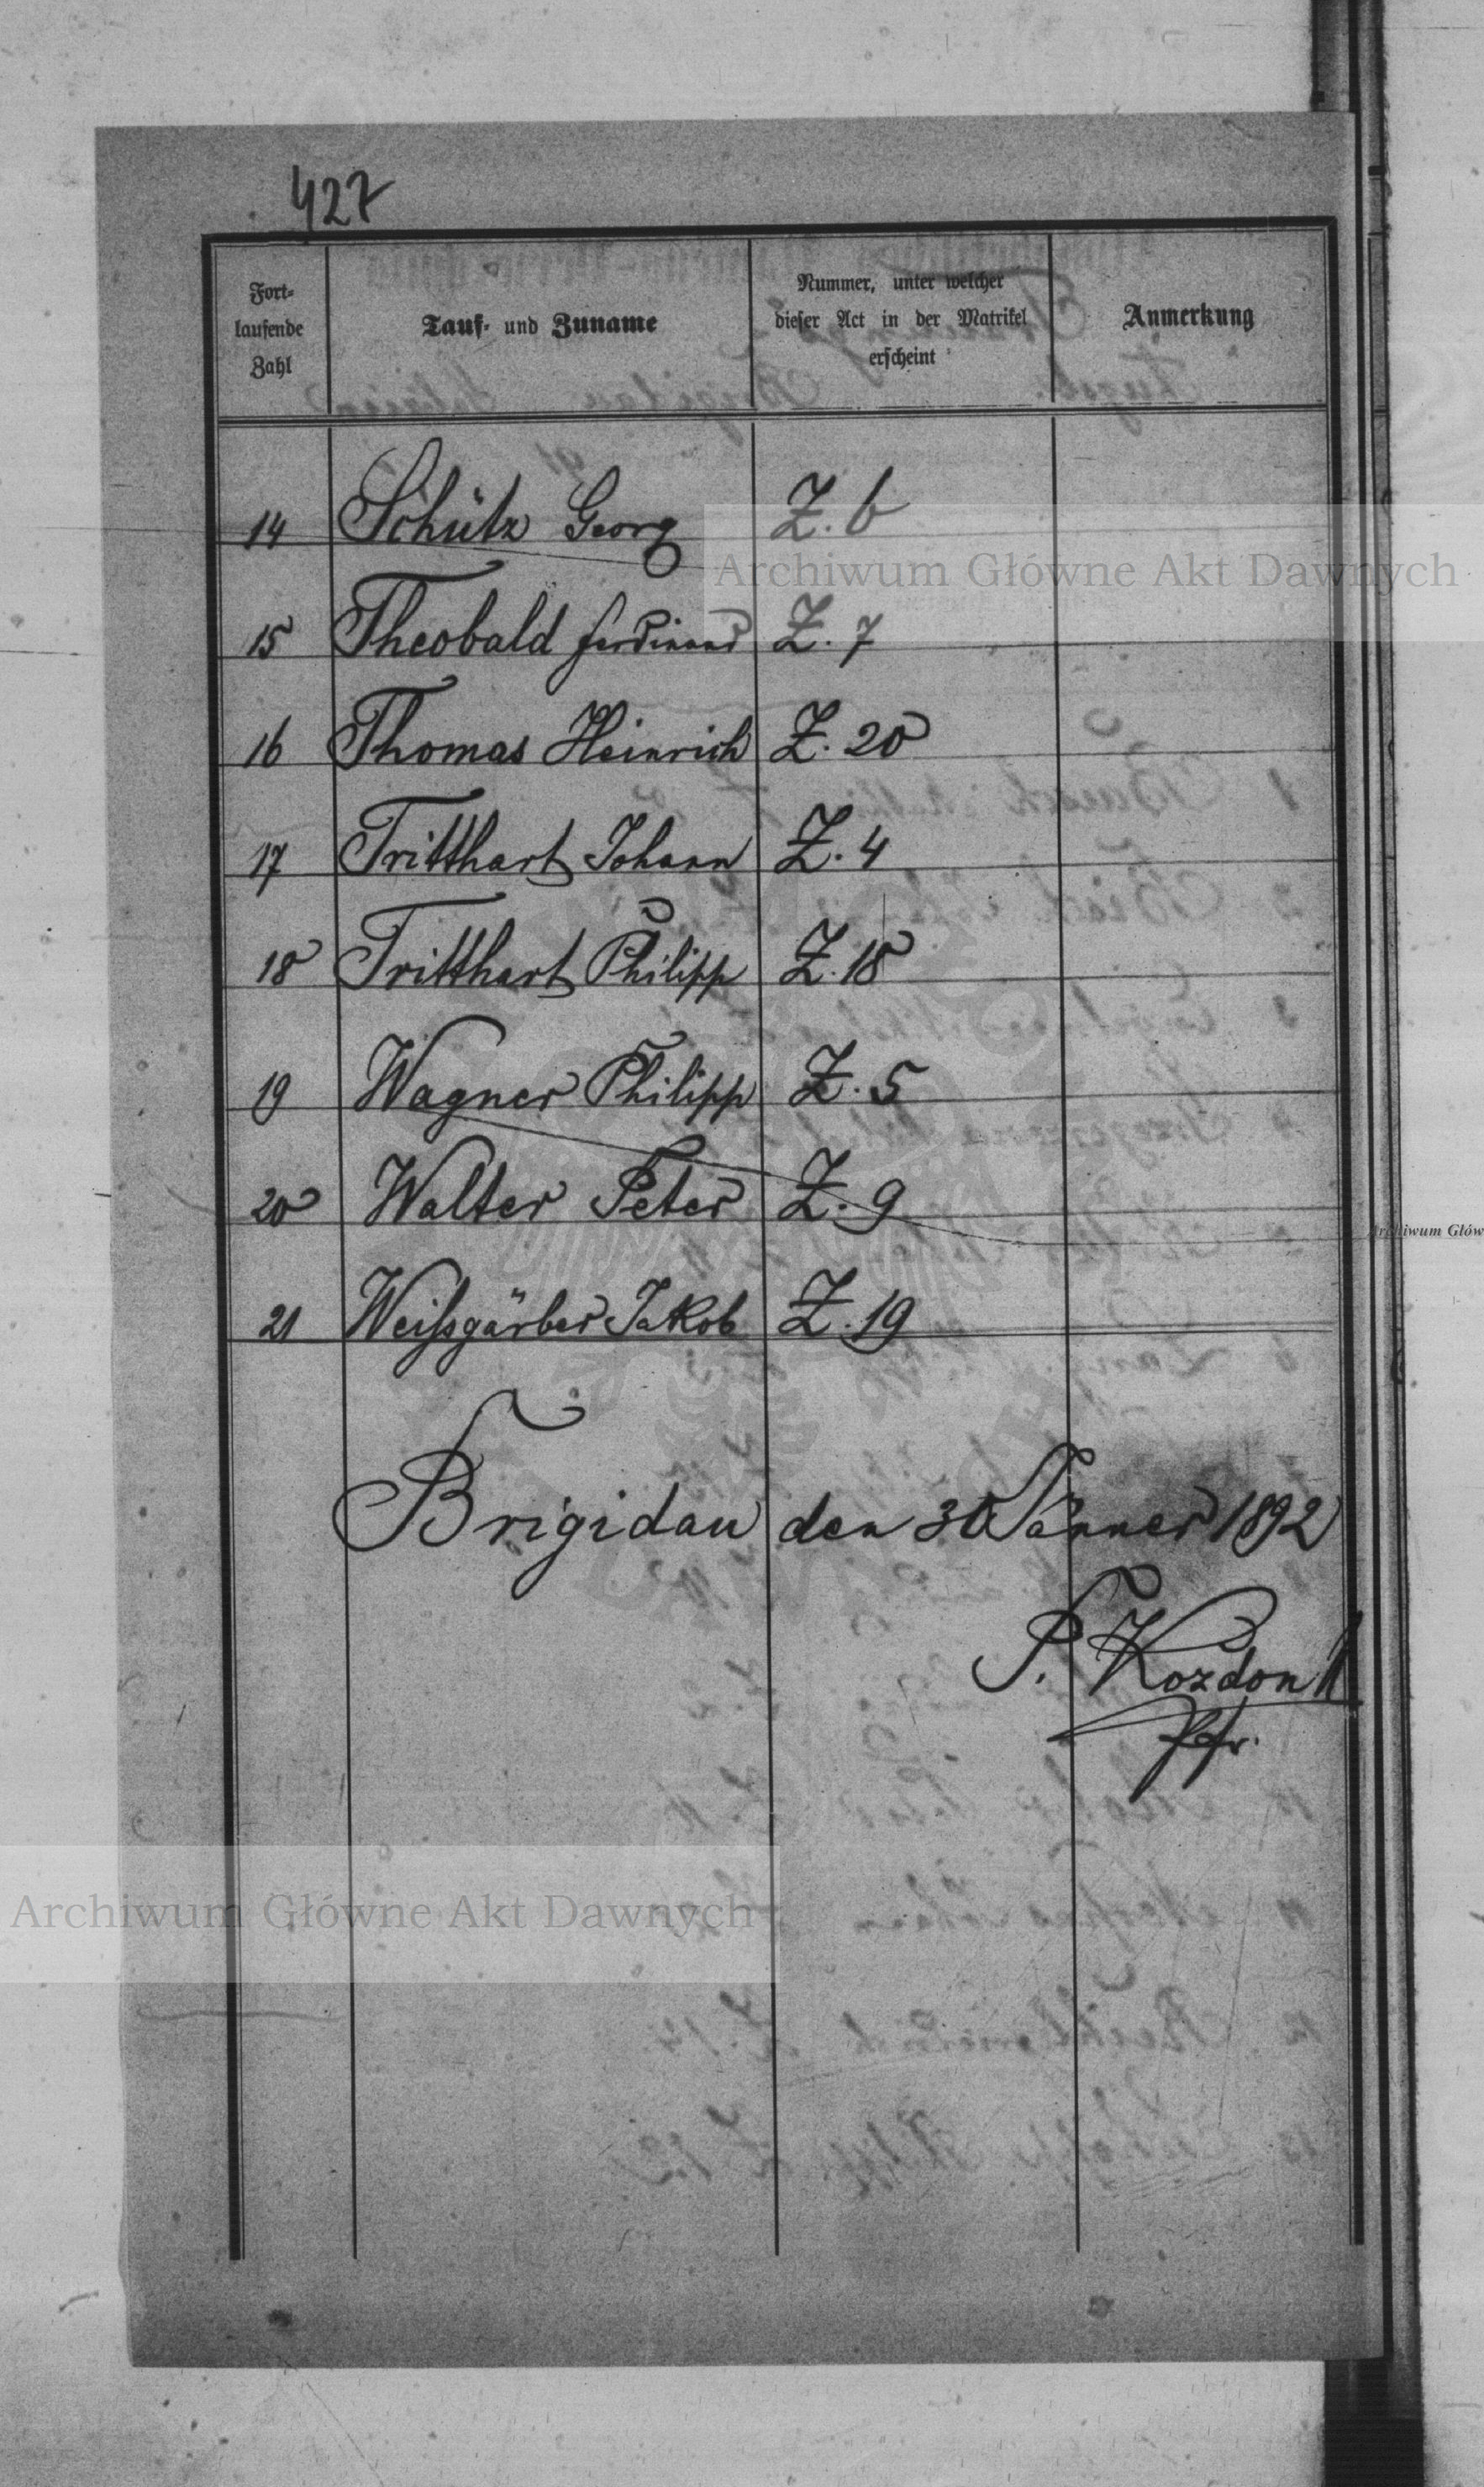 427
Fort-
laufende
Zahl
Tauf- und Zuname
Nummer, unter welcher
dieser Act in der Matrikel
erscheint
Anmerkung
14 Schütz Georg Z. 6
15 Theobald Ferdinand Z. 7
16 Thomas Heinrich Z. 20
17 Tritthart Johann Z. 4
18 Tritthart Philipp Z. 18
19 Wagner Philipp Z. 5
20 Walter Peter Z. 9
21 Weißgärber Jakob Z. 19
Brigidau den 30 Jänner 1892
P. Kozdon
Pfr.
Archiwum Główne Akt Dawnych
Archiwum Głów
Archiwum Główne Akt Dawnych